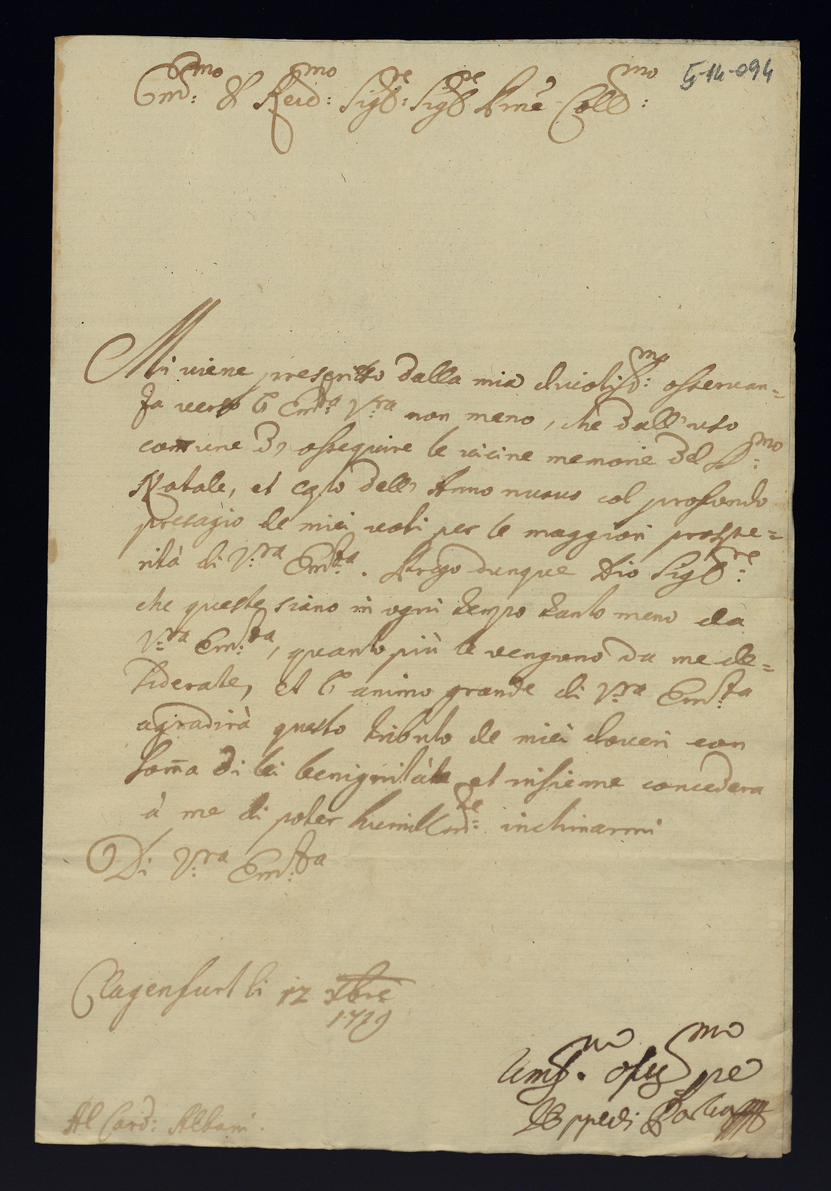 Em:mo & Reud:mo Sig:re Sig:re Prne Coll:mo
5-14-094
Mi viene prescritto dalla mia divotiss:ma osservan=
za verso l'Em:za V:ra non meno, che dall'uso
comune di ossequire le vicine memorie del S:mo
Natale, et Capo dell'Anno nuovo col profondo
presagio de miei voti per le maggiori prospe=
rità di V:ra Em:za. Prego dunque Dio Sig:re
che queste siano in ogni tempo tanto meno da
V:ra Em:za, quanto più le vengono da me de=
siderate, et l'animo grande di V:ra Em:za
agradirà questo tributo de miei doveri con
somã di lei benignità et insieme concedera
à me di poter humilm:te inchinarmi
Di V:ra Em:za
Clagenfurt li 12 Xbre
1719
Al Card: Albani.